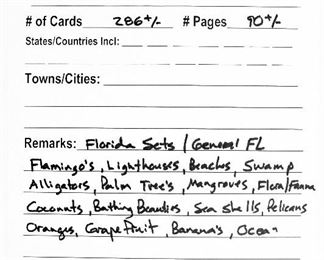 # of Cards 286+/- # Pages 90+/-
States/Countries Incl:
Towns/Cities:
Remarks: Florida Sets / General FL
Flamingo's, Lighthouses, Beaches, Swamp
Alligators, Palm Tree's, Mangroves, Flora/Fauna
Coconuts, Bathing Beauties, Sea Shells, Pelicans
Oranges, Grapefruit, Banana's, Ocean